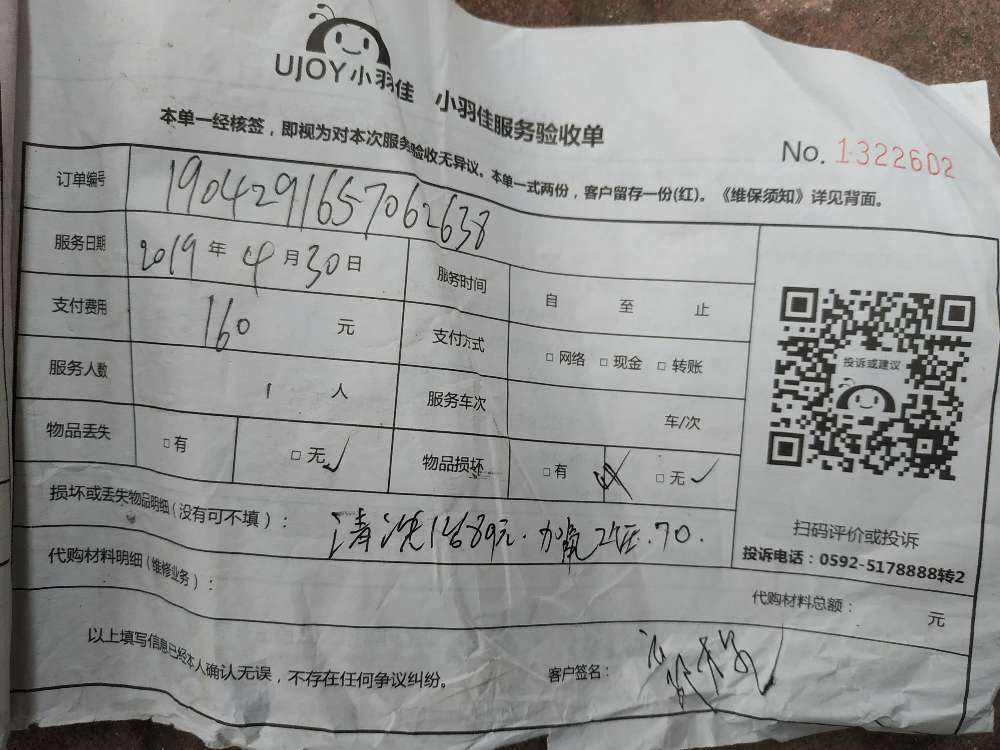 UJOY小羽佳 小羽佳服务验收单
本单一经核签，即视为对本次服务验收无异议。本单一式两份，客户留存一份(红)。《维保须知》详见背面。
No. 1322602
订单编号 1904291657062638
服务日期 2019年4月30日 服务时间 自 至 止
支付费用 160 元 支付方式 □网络 □现金 □转账
服务人数 1 人 服务车次 车/次
物品丢失 □有 □无✓ 物品损坏 □有 □无✓
投诉或建议
扫码评价或投诉
投诉电话：0592-5178888转2
损坏或丢失物品明细（没有可不填）： 清洗1台89元.加氟2压.70.
代购材料明细（维修业务）：
代购材料总额： 元
以上填写信息已经本人确认无误，不存在任何争议纠纷。 客户签名：